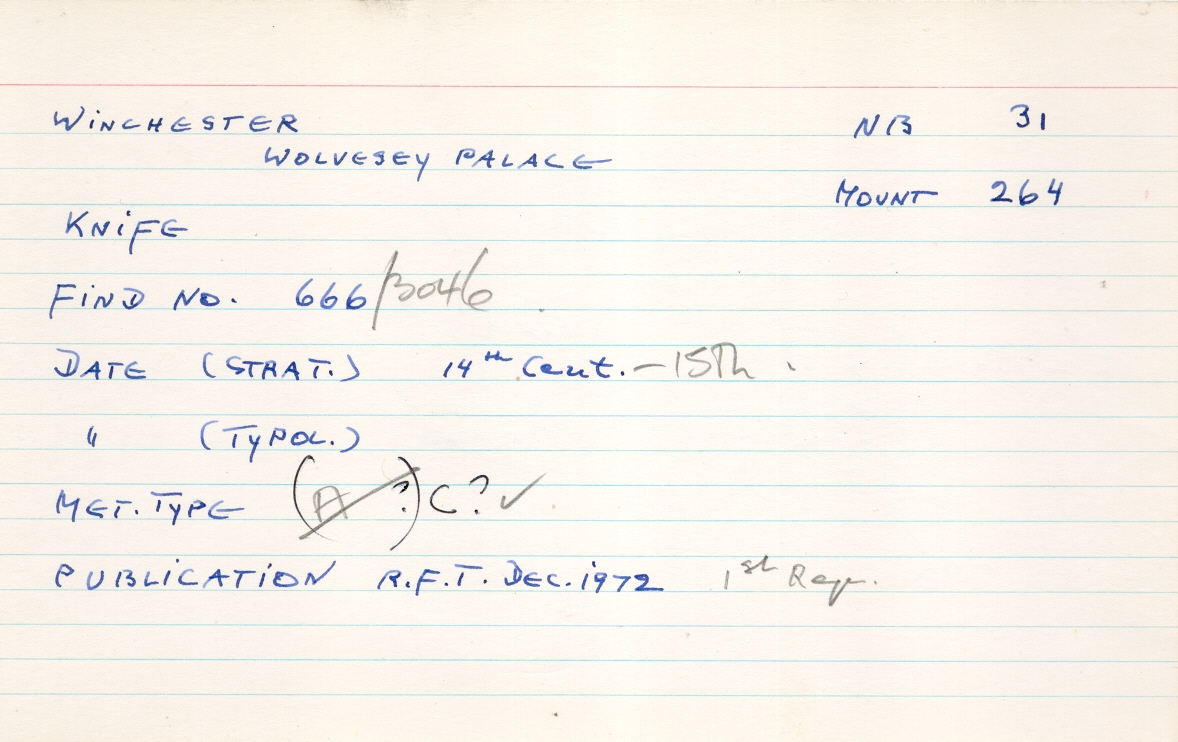 WINCHESTER NB 31
WOLVESEY PALACE
MOUNT 264
KNIFE
FIND NO. 666/3046
DATE (STRAT.) 14th Cent. – 15th.
" (TYPOL.)
MET. TYPE (A ?) C? ✓
PUBLICATION R.F.T. DEC. 1972 1st Rep.